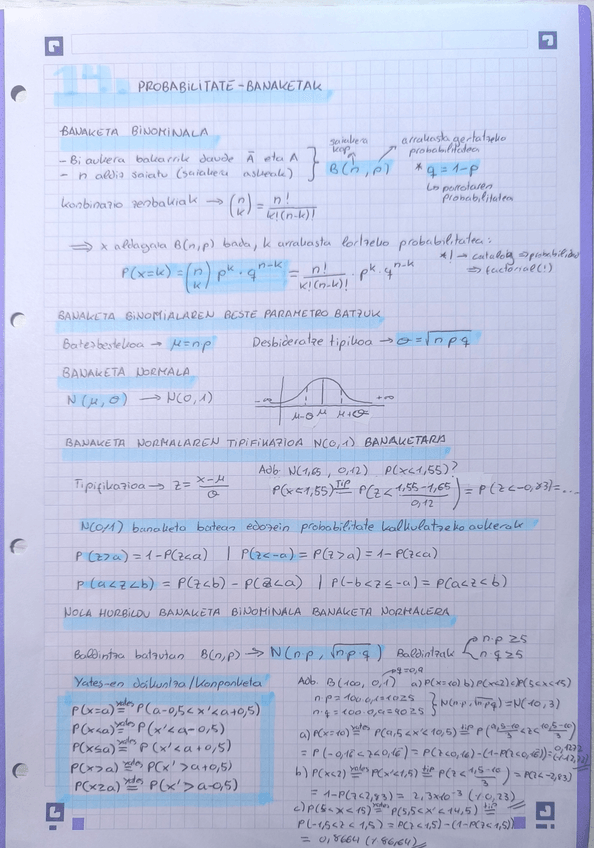 14. PROBABILITATE-BANAKETAK
BANAKETA BINOMINALA
- Bi aukera bakarrik daude Ā eta A
- n aldiz saiatu (saiakera askeak)
saiakera kop
B(n, p)
arrakasta gertatzeko probabilitatea
* q = 1-p
↳ porrotaren probabilitatea
Konbinazio zenbakiak → (n k) = n! / k!(n-k)!
⇒ x aldagaia B(n,p) bada, k arrakasta lortzeko probabilitatea:
P(x=k) = (n k) p^k · q^(n-k) = n! / k!(n-k)! · p^k · q^(n-k)
*! → catalog ⇒ probabilidad
⇒ factorial (!)
BANAKETA BINOMIALAREN BESTE PARAMETRO BATZUK
Batezbestekoa → μ = np Desbideratze tipikoa → σ = √npq
BANAKETA NORMALA
N(μ, σ) → N(0, 1)
-∞ μ-σ μ μ+σ +∞
BANAKETA NORMALAREN TIPIFIKAZIOA N(0,1) BANAKETARA
Adb. N(1,65, 0,12) P(x<1,55)?
Tipifikazioa → z = x-μ / σ
P(x<1,55) =TIP P(z < 1,55-1,65 / 0,12) = P(z<-0,83) = ...
N(0,1) banaketa batean edozein probabilitate kalkulatzeko aukerak
P(z>a) = 1-P(z<a) | P(z<-a) = P(z>a) = 1-P(z<a)
P(a<z<b) = P(z<b) - P(z<a) | P(-b<z≤-a) = P(a<z<b)
NOLA HURBILDU BANAKETA BINOMINALA BANAKETA NORMALERA
Baldintza batzutan B(n,p) → N(np, √np·q) Baldintzak
n·p ≥5
n·q ≥5
Yates-en doikuntza/konponketa
P(x=a) =yates P(a-0,5<x'<a+0,5)
P(x<a) =yates P(x'<a-0,5)
P(x≤a) =yates P(x'<a+0,5)
P(x>a) =yates P(x'>a+0,5)
P(x≥a) =yates P(x'>a-0,5)
Adb. B(100, 0,1) a) P(x=10) b) P(x<2) c) P(5<x<15)
→ q=0,9
n·p = 100·0,1=10≥5
n·q = 100·0,9=90≥5
} N(n·p, √npq) = N(10, 3)
a) P(x=10) =yates P(9,5<x'<10,5) =tip P(9,5-10 / 3 <z< 10,5-10 / 3)
= P(-0,16<z<0,16) = P(z<0,16)-(1-P(z<0,16)) = 0,1272
b) P(x<2) =yates P(x'<1,5) =tip P(z< 1,5-10 / 3) = P(z<-2,83)
= 1-P(z<2,83) = 2,3×10⁻³ (%0,23)
c) P(5<x<15) =yates P(5,5<x'<14,5) =tip
P(-1,5<z<1,5) = P(z<1,5)-(1-P(z<1,5))
= 0,8664 (%86,64)